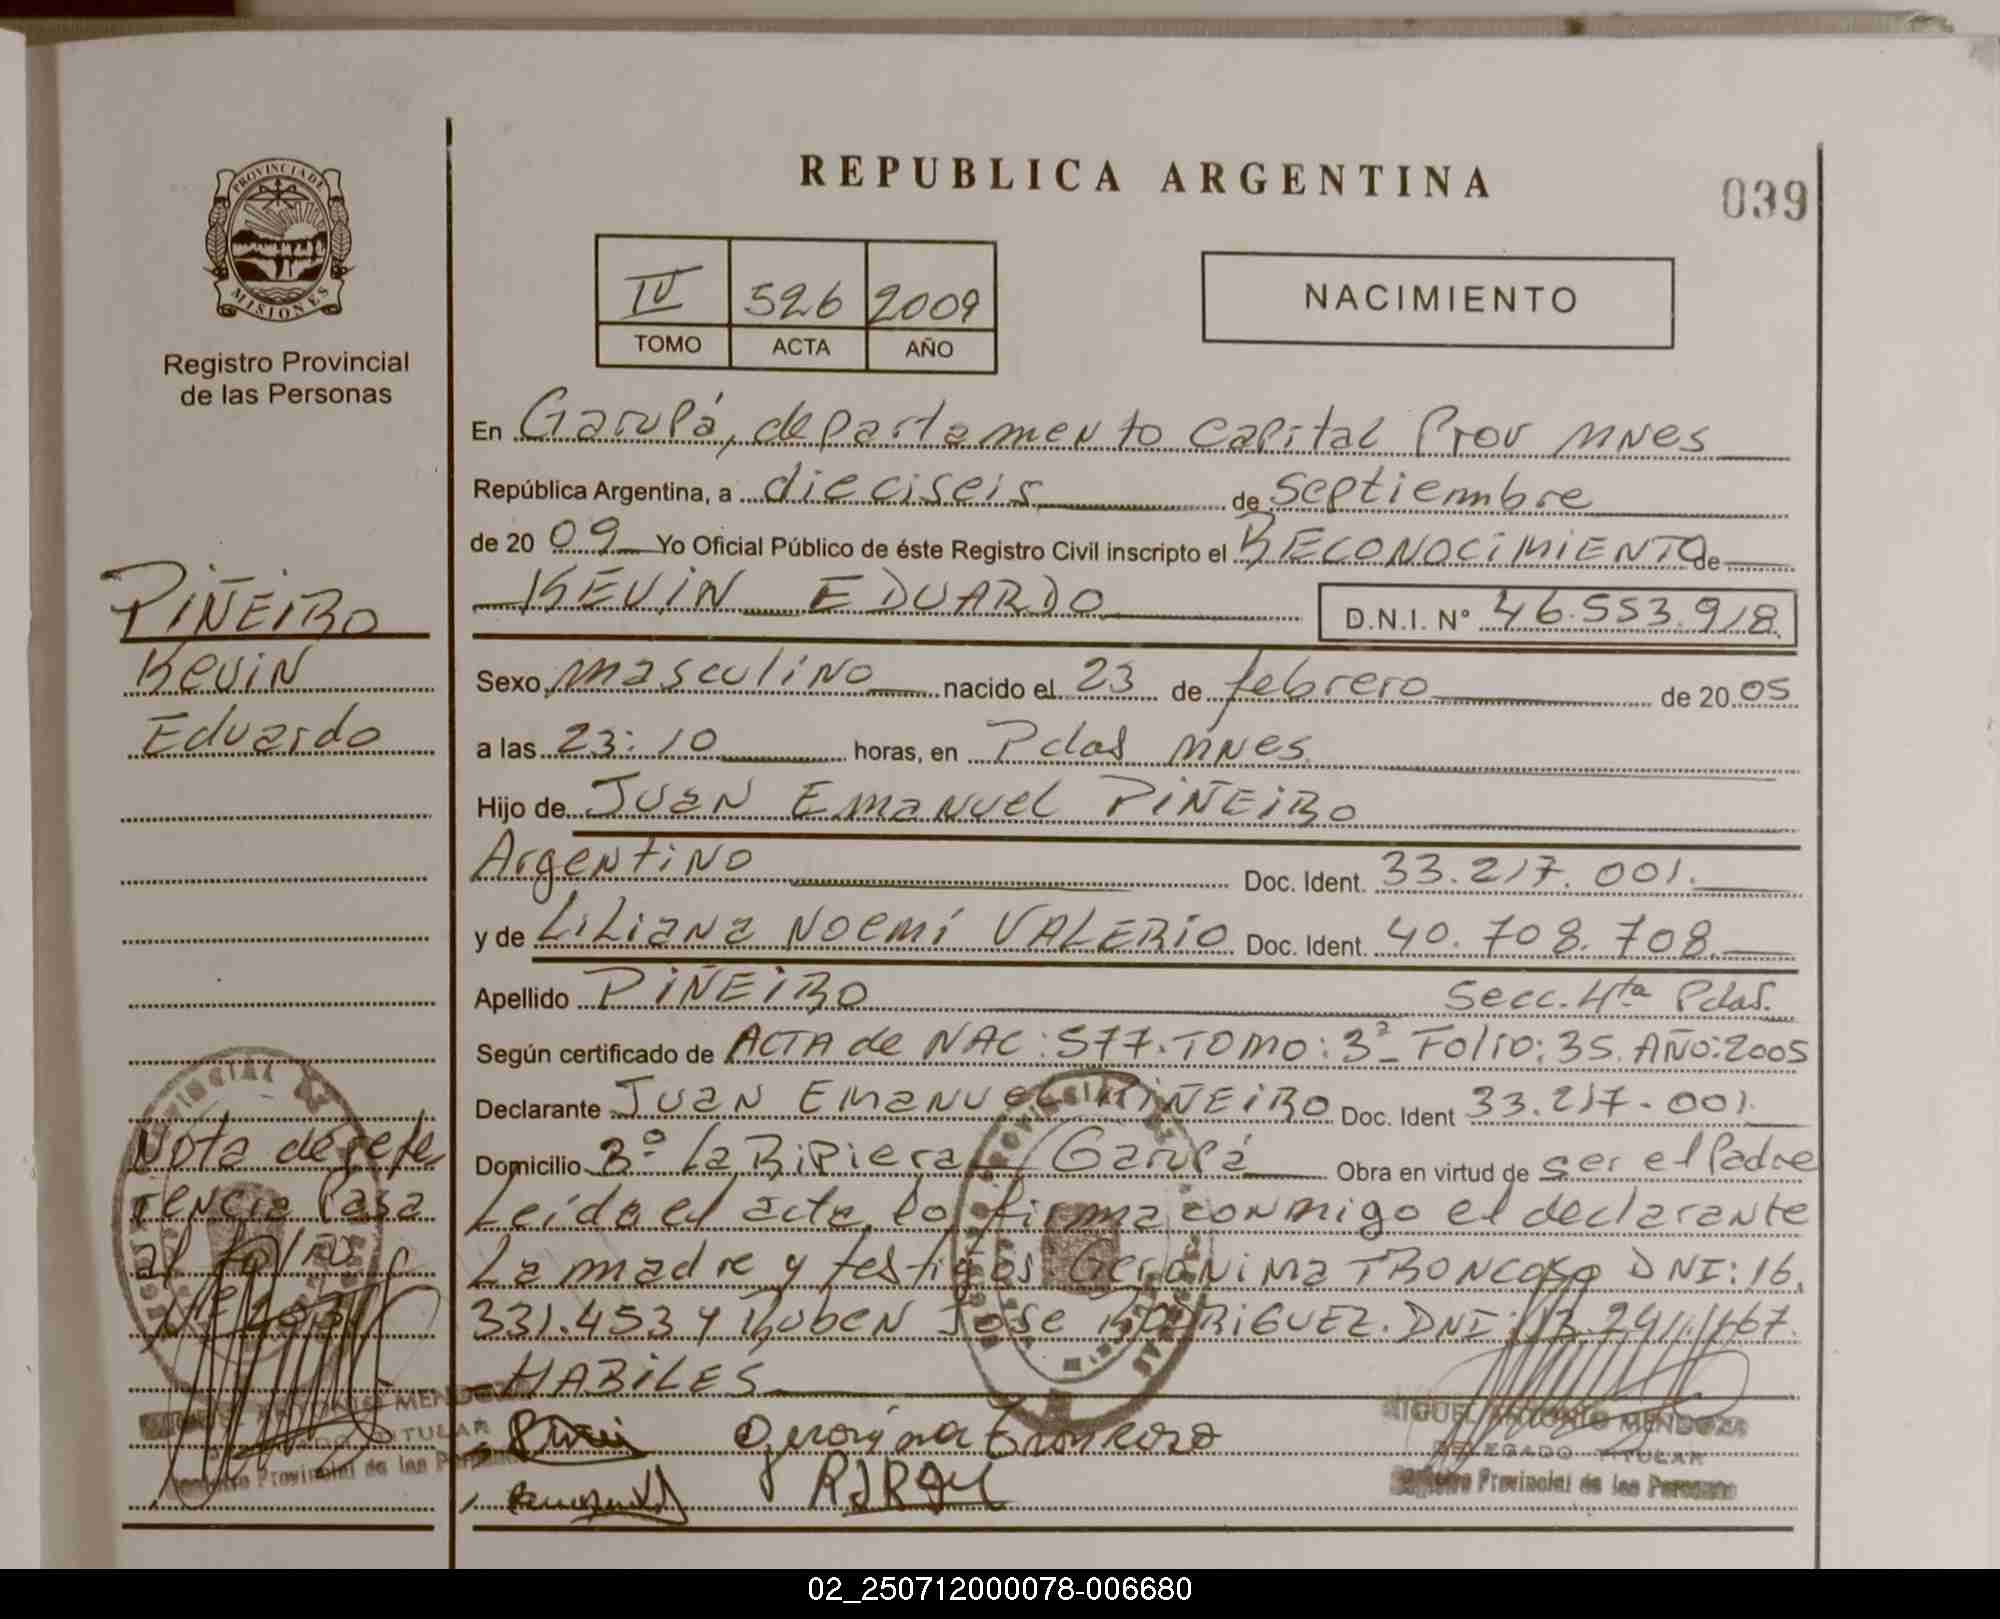 REPUBLICA ARGENTINA
039
PROVINCIA DE
MISIONES
Registro Provincial
de las Personas
IV 526 2009
TOMO ACTA AÑO
NACIMIENTO
En Garupá, departamento Capital Prov MNES
República Argentina, a dieciseis de septiembre
de 20 09 Yo Oficial Público de éste Registro Civil inscripto el RECONOCIMIENTO de
KEVIN EDUARDO D.N.I. N° 46.553.918.
PIÑEIRO
Kevin
Eduardo
Sexo masculino nacido el 23 de febrero de 20 05
a las 23:10 horas, en Pdas MNES.
Hijo de Juan Emanuel PIÑEIRO
Argentino Doc. Ident. 33.217.001.
y de Liliana Noemí VALERIO Doc. Ident. 40.708.708.
Apellido PIÑEIRO Secc. 4ta Pdas.
Según certificado de ACTA de NAC: 577. TOMO: 3º Folio: 35. AÑO: 2005
Declarante Juan Emanuel PIÑEIRO Doc. Ident 33.217.001.
Domicilio Bº La Ripiera / Garupá Obra en virtud de ser el Padre
Leída el acta, la firma conmigo el declarante
La madre y testigos Gerónima TRONCOSO DNI: 16.
331.453 y Ruben José RODRIGUEZ. DNI:
HABILES
Nota de refe
rencia Pasa
al folio
Nº 203
Gerónima Troncoso
MIGUEL ANTONIO MENDOZA
DELEGADO TITULAR
Registro Provincial de las Personas
MIGUEL ANTONIO MENDOZA
DELEGADO TITULAR
Registro Provincial de las Personas
02_250712000078-006680